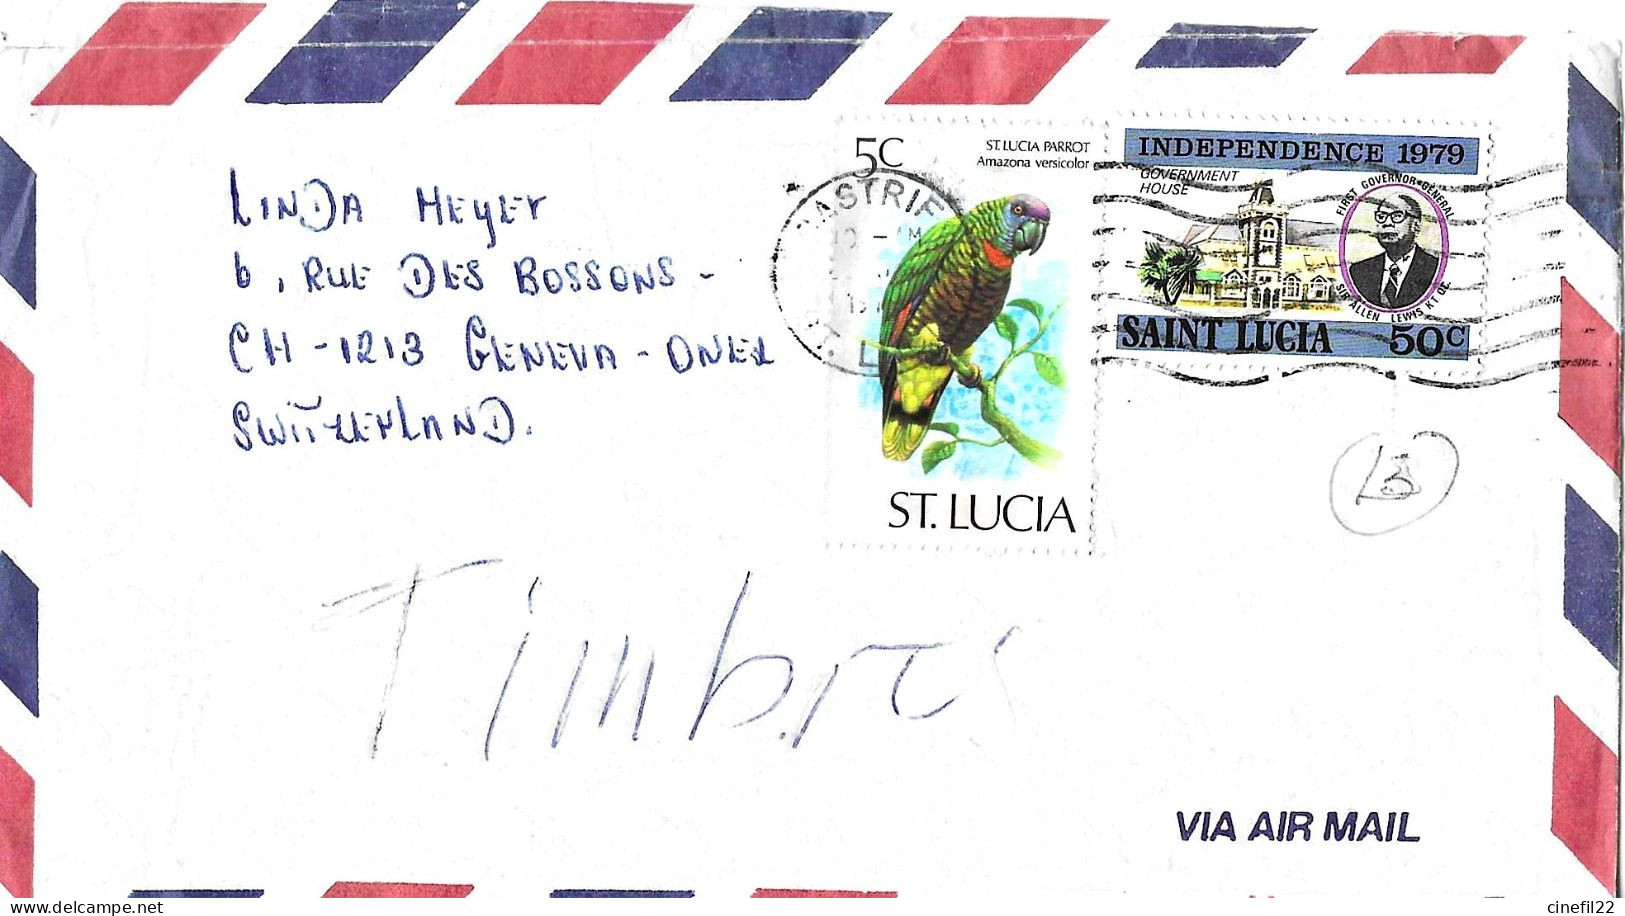 LINDA MEYER
6, RUE DES BOSSONS -
CH-1213 GENEVA-ONEX
SWITZERLAND.
5C
ST. LUCIA PARROT
Amazona versicolor
ST. LUCIA
INDEPENDENCE 1979
GOVERNMENT
HOUSE
FIRST GOVERNOR-GENERAL
SIR ALLEN LEWIS KT QC.
SAINT LUCIA 50C
CASTRIE
Timbres
VIA AIR MAIL
www.delcampe.net
cinefil22